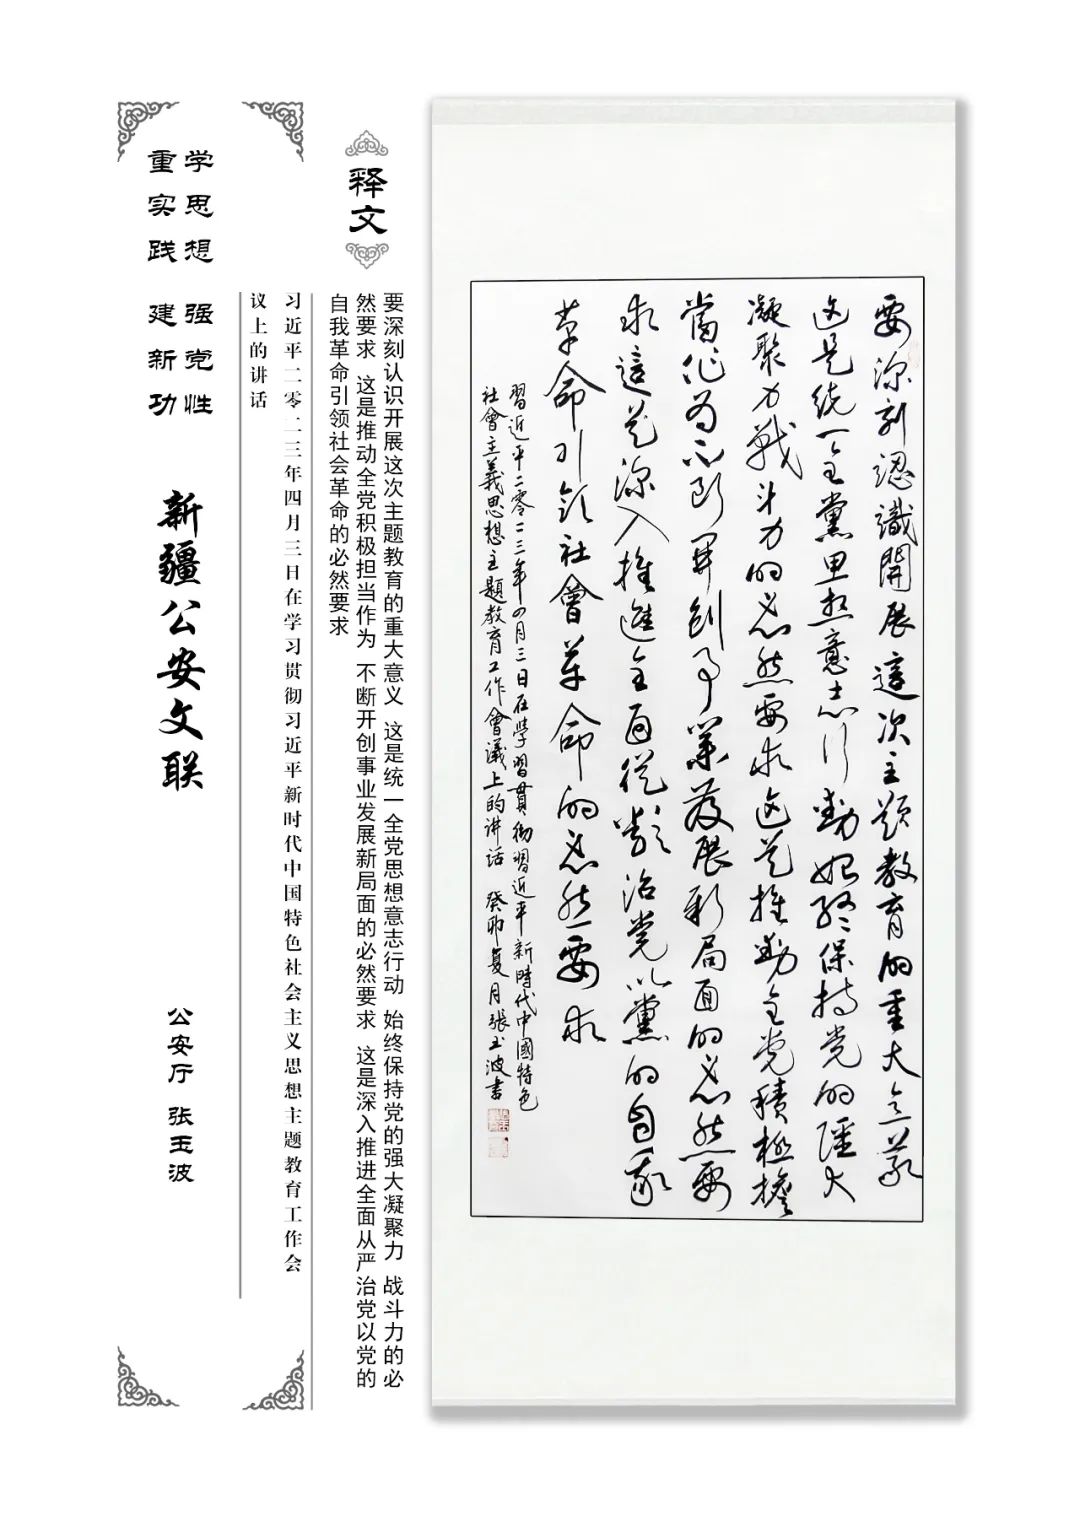 要深刻認識開展這次主題教育的重大意義
这是统一全黨思想意志行動始终保持党的强大
凝聚力戰斗力的必然要求这是推動全党積極擔
當作为不断開創事業發展新局面的必然要
求這是深入推進全面從嚴治党以黨的自我
革命引领社會革命的必然要求
習近平二零二三年四月三日在學習貫彻習近平新時代中國特色
社會主義思想主題教育工作會議上的讲话 癸卯夏月張玉波書
释文
要深刻认识开展这次主题教育的重大意义 这是统一全党思想意志行动 始终保持党的强大凝聚力 战斗力的必
然要求 这是推动全党积极担当作为 不断开创事业发展新局面的必然要求 这是深入推进全面从严治党以党的
自我革命引领社会革命的必然要求
习近平二零二三年四月三日在学习贯彻习近平新时代中国特色社会主义思想主题教育工作会
议上的讲话
学思想 强党性
重实践 建新功
新疆公安文联
公安厅 张玉波